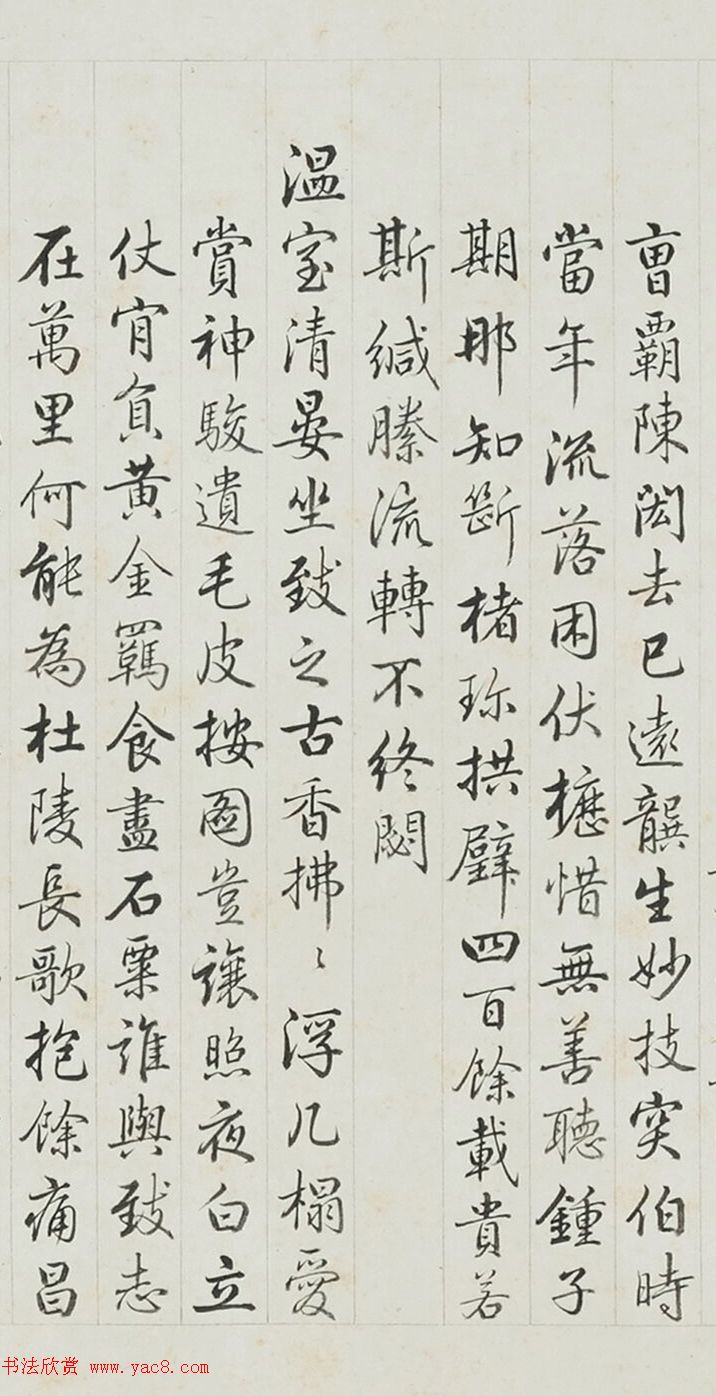 曺霸陳閎去已遠龔生妙技突伯時
當年流落困伏櫪惜無善聽鍾子
期那知斷楮珍拱璧四百餘載貴若
斯緘縢流轉不終閟
溫室清晏坐致之古香拂〻浮几榻愛
賞神駿遺毛皮按圖豈讓照夜白立
仗肎負黃金羈食盡石粟誰與致志
在萬里何能為杜陵長歌抱餘痛昌
书法欣赏 www.yac8.com